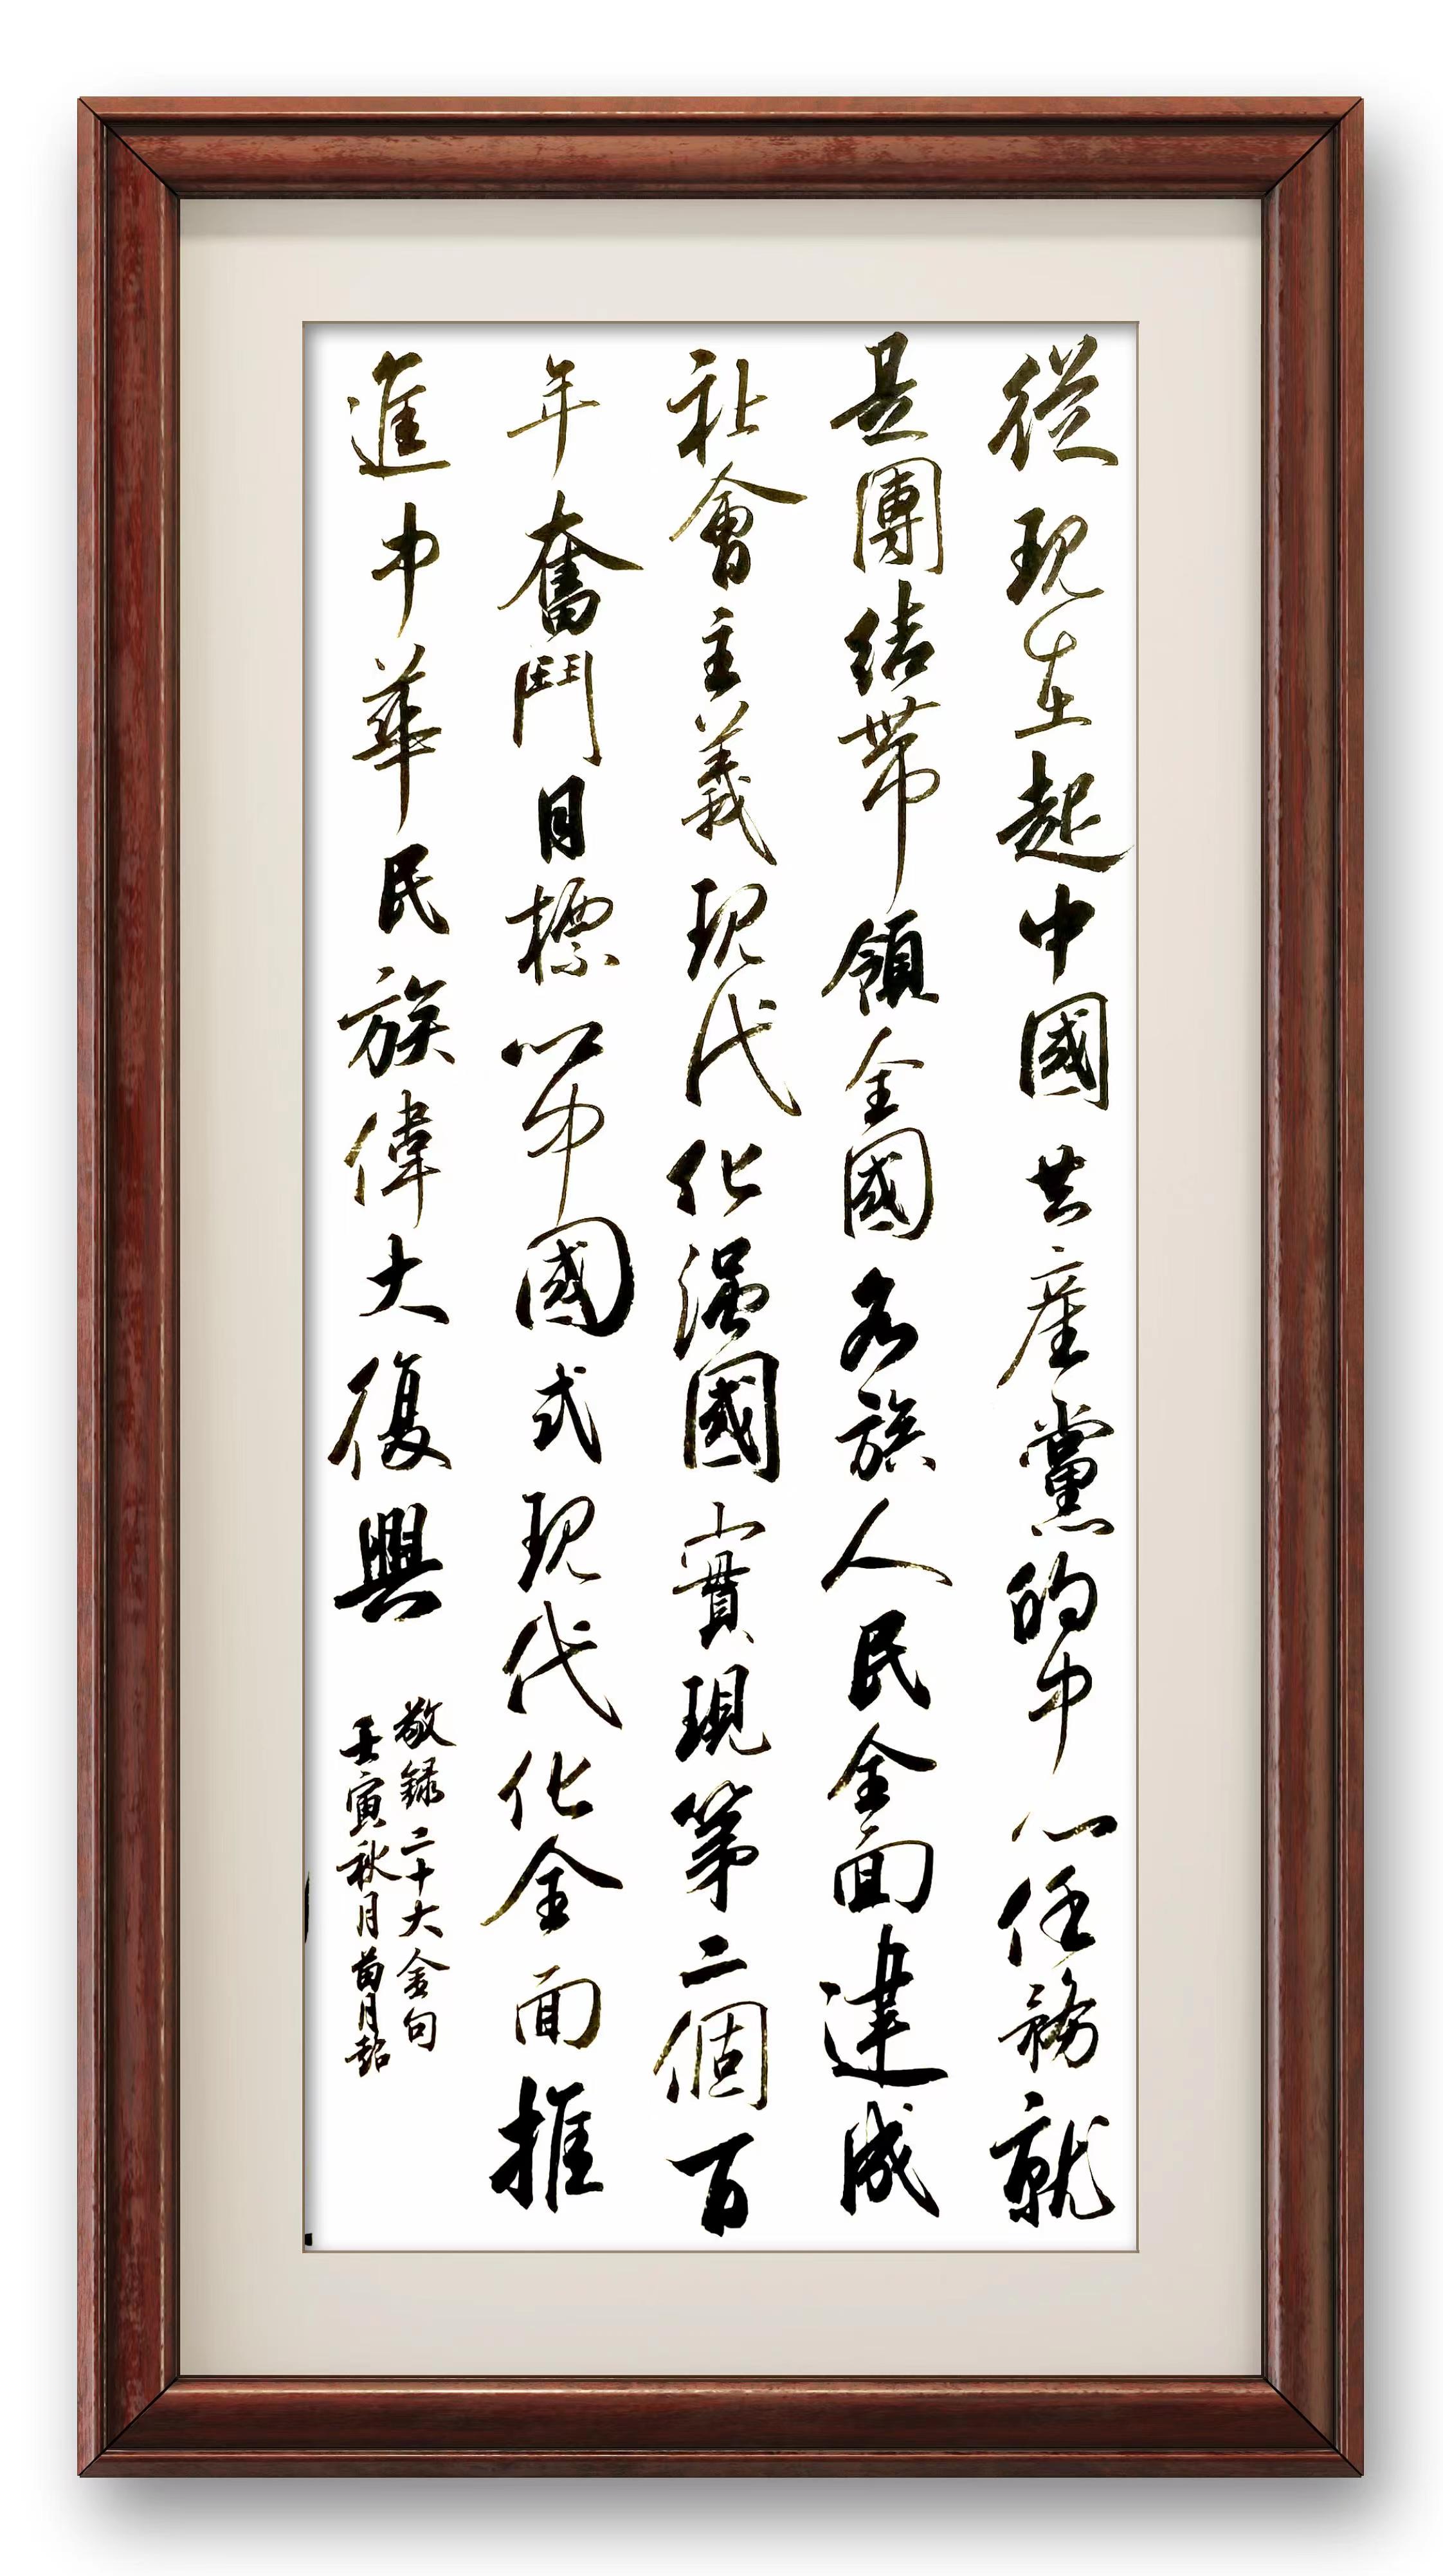 從現在起中國共産黨的中心任務就
是團結帶領全國各族人民全面建成
社會主義現代化强國實現第二個百
年奮鬥目標以中國式現代化全面推
進中華民族偉大復興
敬録二十大金句
壬寅秋月苗月起